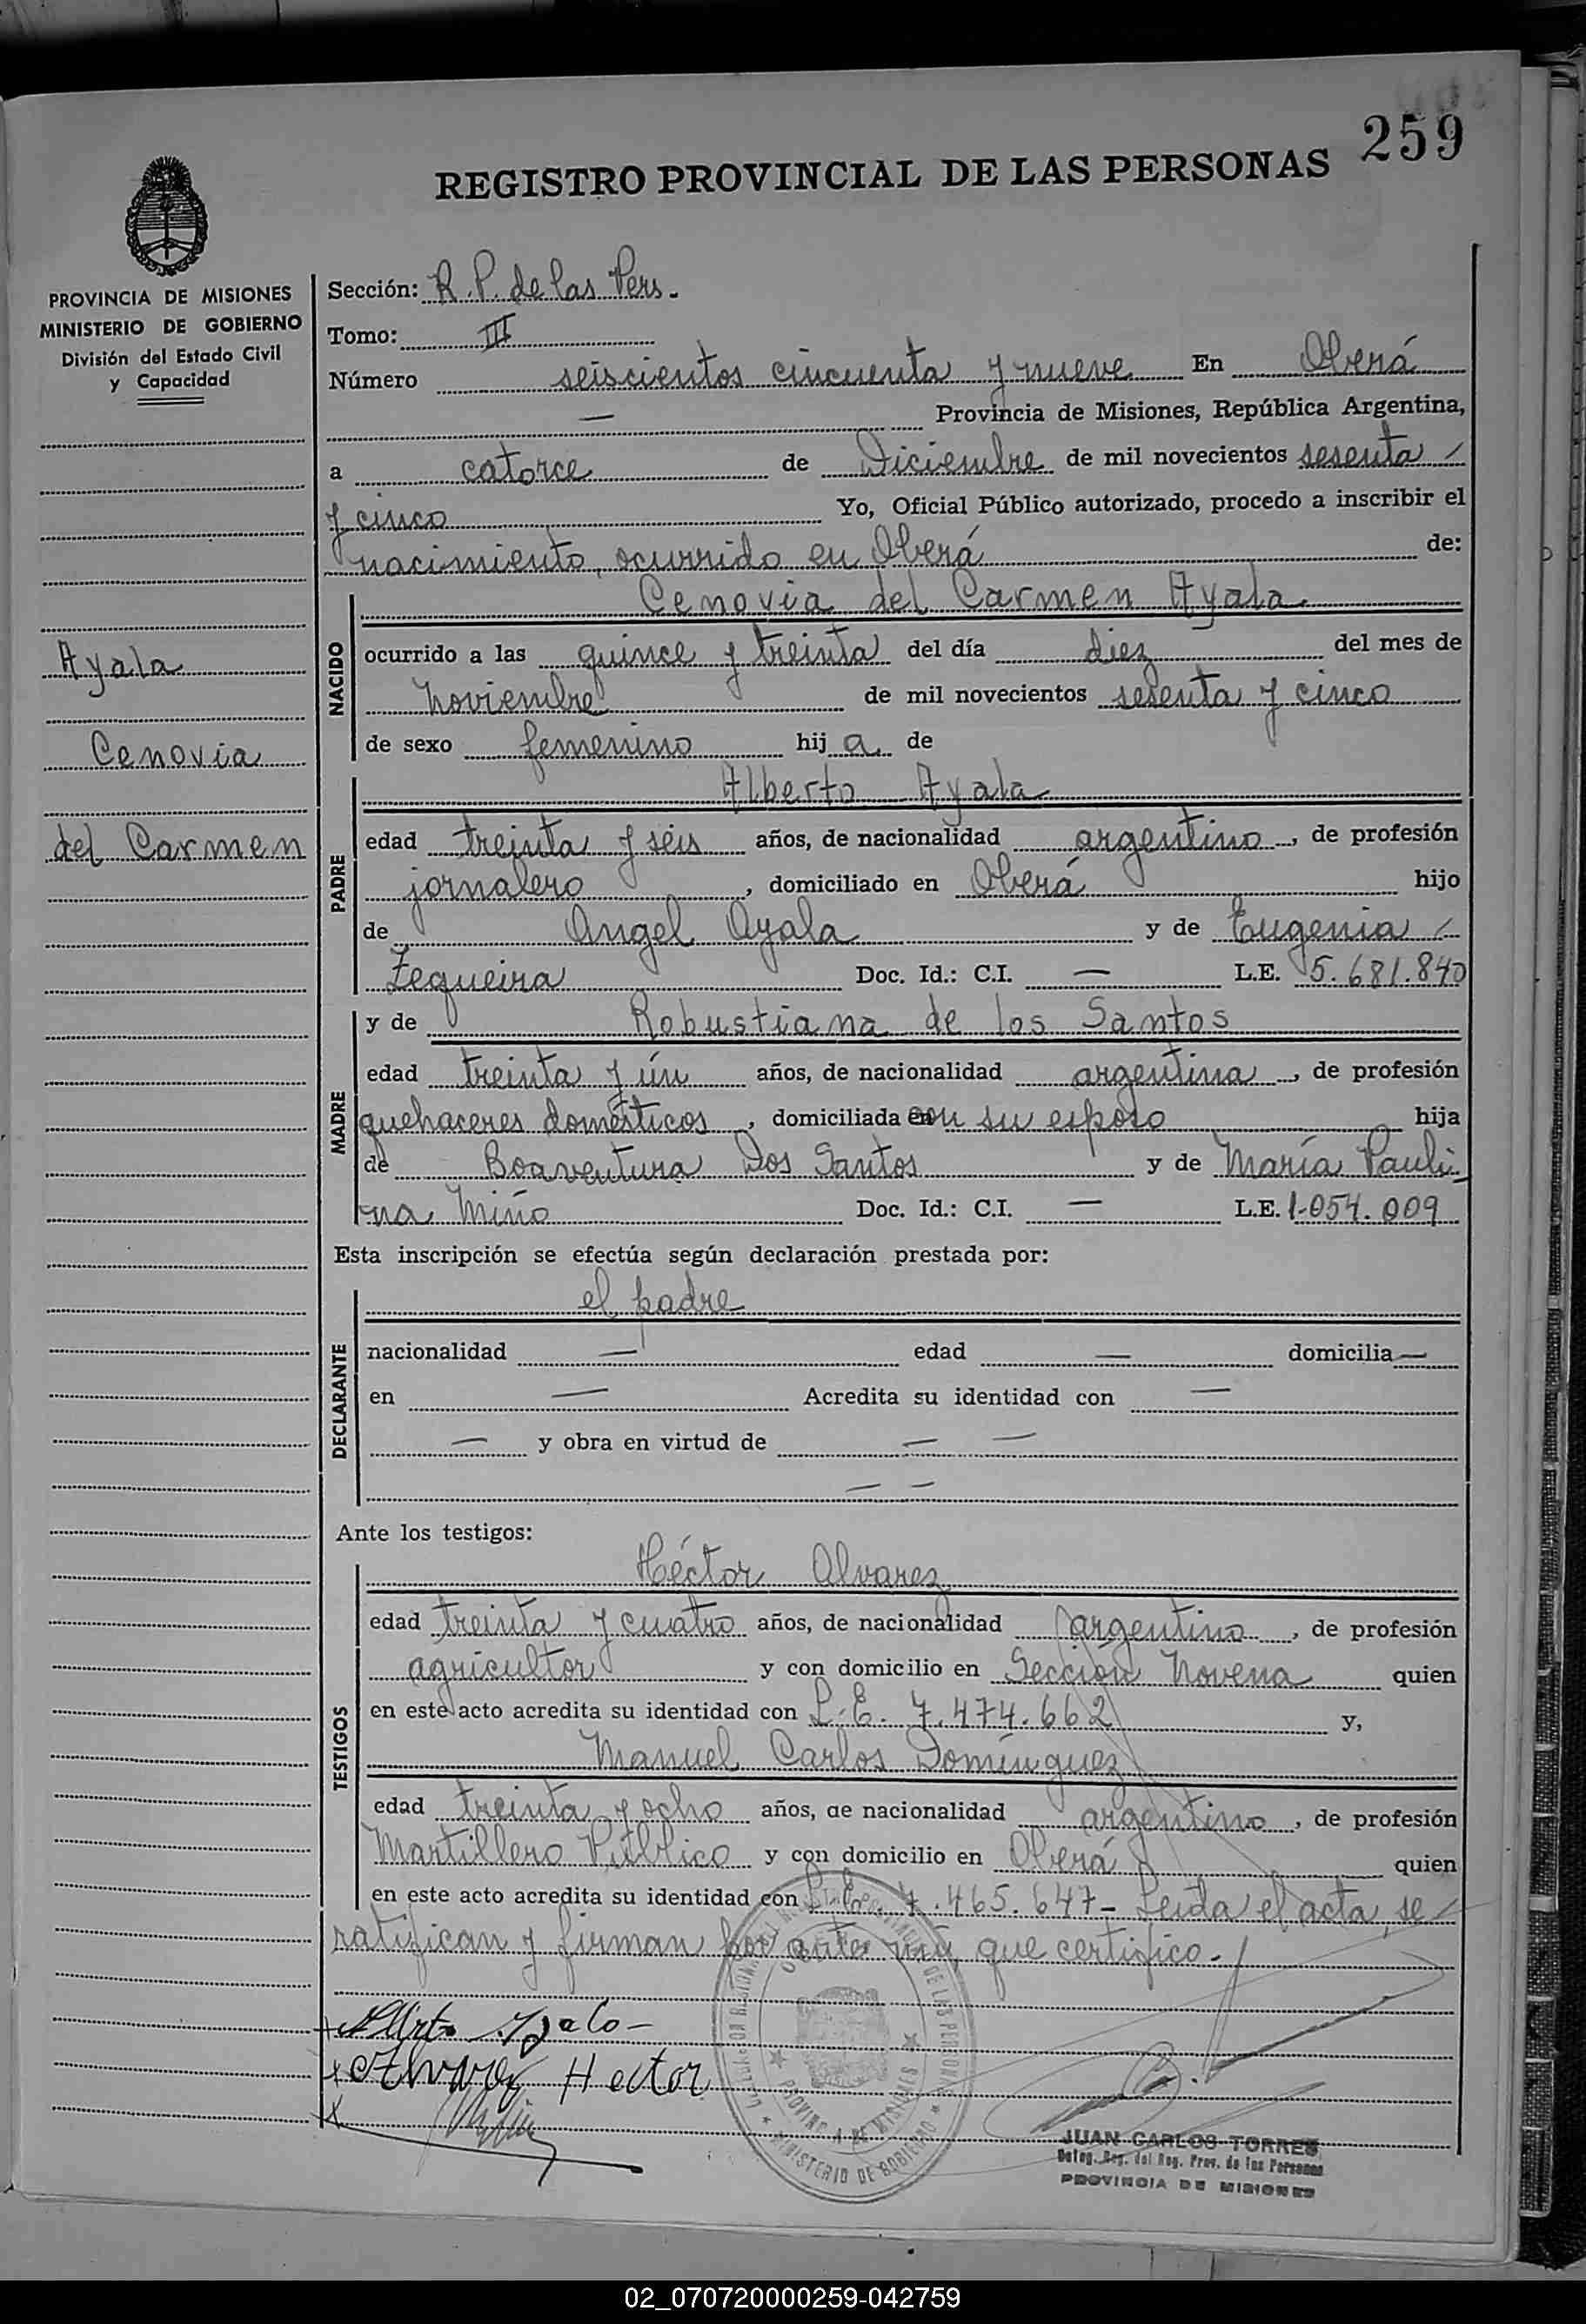 259
REGISTRO PROVINCIAL DE LAS PERSONAS
PROVINCIA DE MISIONES
MINISTERIO DE GOBIERNO
División del Estado Civil
y Capacidad
Ayala
Cenovia
del Carmen
Sección: R. P. de las Pers.
Tomo: III
Número seiscientos cincuenta y nueve En Oberá
— Provincia de Misiones, República Argentina,
a catorce de Diciembre de mil novecientos sesenta /
y cinco Yo, Oficial Público autorizado, procedo a inscribir el
nacimiento, ocurrido en Oberá de:
NACIDO
Cenovia del Carmen Ayala
ocurrido a las quince y treinta del día diez del mes de
noviembre de mil novecientos sesenta y cinco
de sexo femenino hija de
PADRE
Alberto Ayala
edad treinta y seis años, de nacionalidad argentino, de profesión
jornalero, domiciliado en Oberá hijo
de Angel Ayala y de Eugenia /
Zequeira Doc. Id.: C.I. — L.E. 5.681.840
MADRE
y de Robustiana de los Santos
edad treinta y ún años, de nacionalidad argentina, de profesión
quehaceres domésticos, domiciliada con su esposo hija
de Boaventura Dos Santos y de María Pauli-
na Miño Doc. Id.: C.I. — L.E. 1.054.009
Esta inscripción se efectúa según declaración prestada por:
DECLARANTE
el padre
nacionalidad — edad — domicilia —
en — Acredita su identidad con —
— y obra en virtud de — —
— —
Ante los testigos:
TESTIGOS
Héctor Alvarez
edad treinta y cuatro años, de nacionalidad argentino, de profesión
agricultor y con domicilio en Sección Novena quien
en este acto acredita su identidad con L.E. 7.474.662 y,
Manuel Carlos Domínguez
edad treinta y ocho años, de nacionalidad argentino, de profesión
Martillero Público y con domicilio en Oberá quien
en este acto acredita su identidad con L.E. 7.465.647- Leida el acta, se /
ratifican y firman por ante mí, que certifico.-
Alberto Ayala -
Alvarez Hector
DE LAS PERSONAS
PROVINCIA DE MISIONES
MINISTERIO DE GOBIERNO
JUAN CARLOS TORRES
Deleg. Reg. del Reg. Prov. de las Personas
PROVINCIA DE MISIONES
02_070720000259-042759